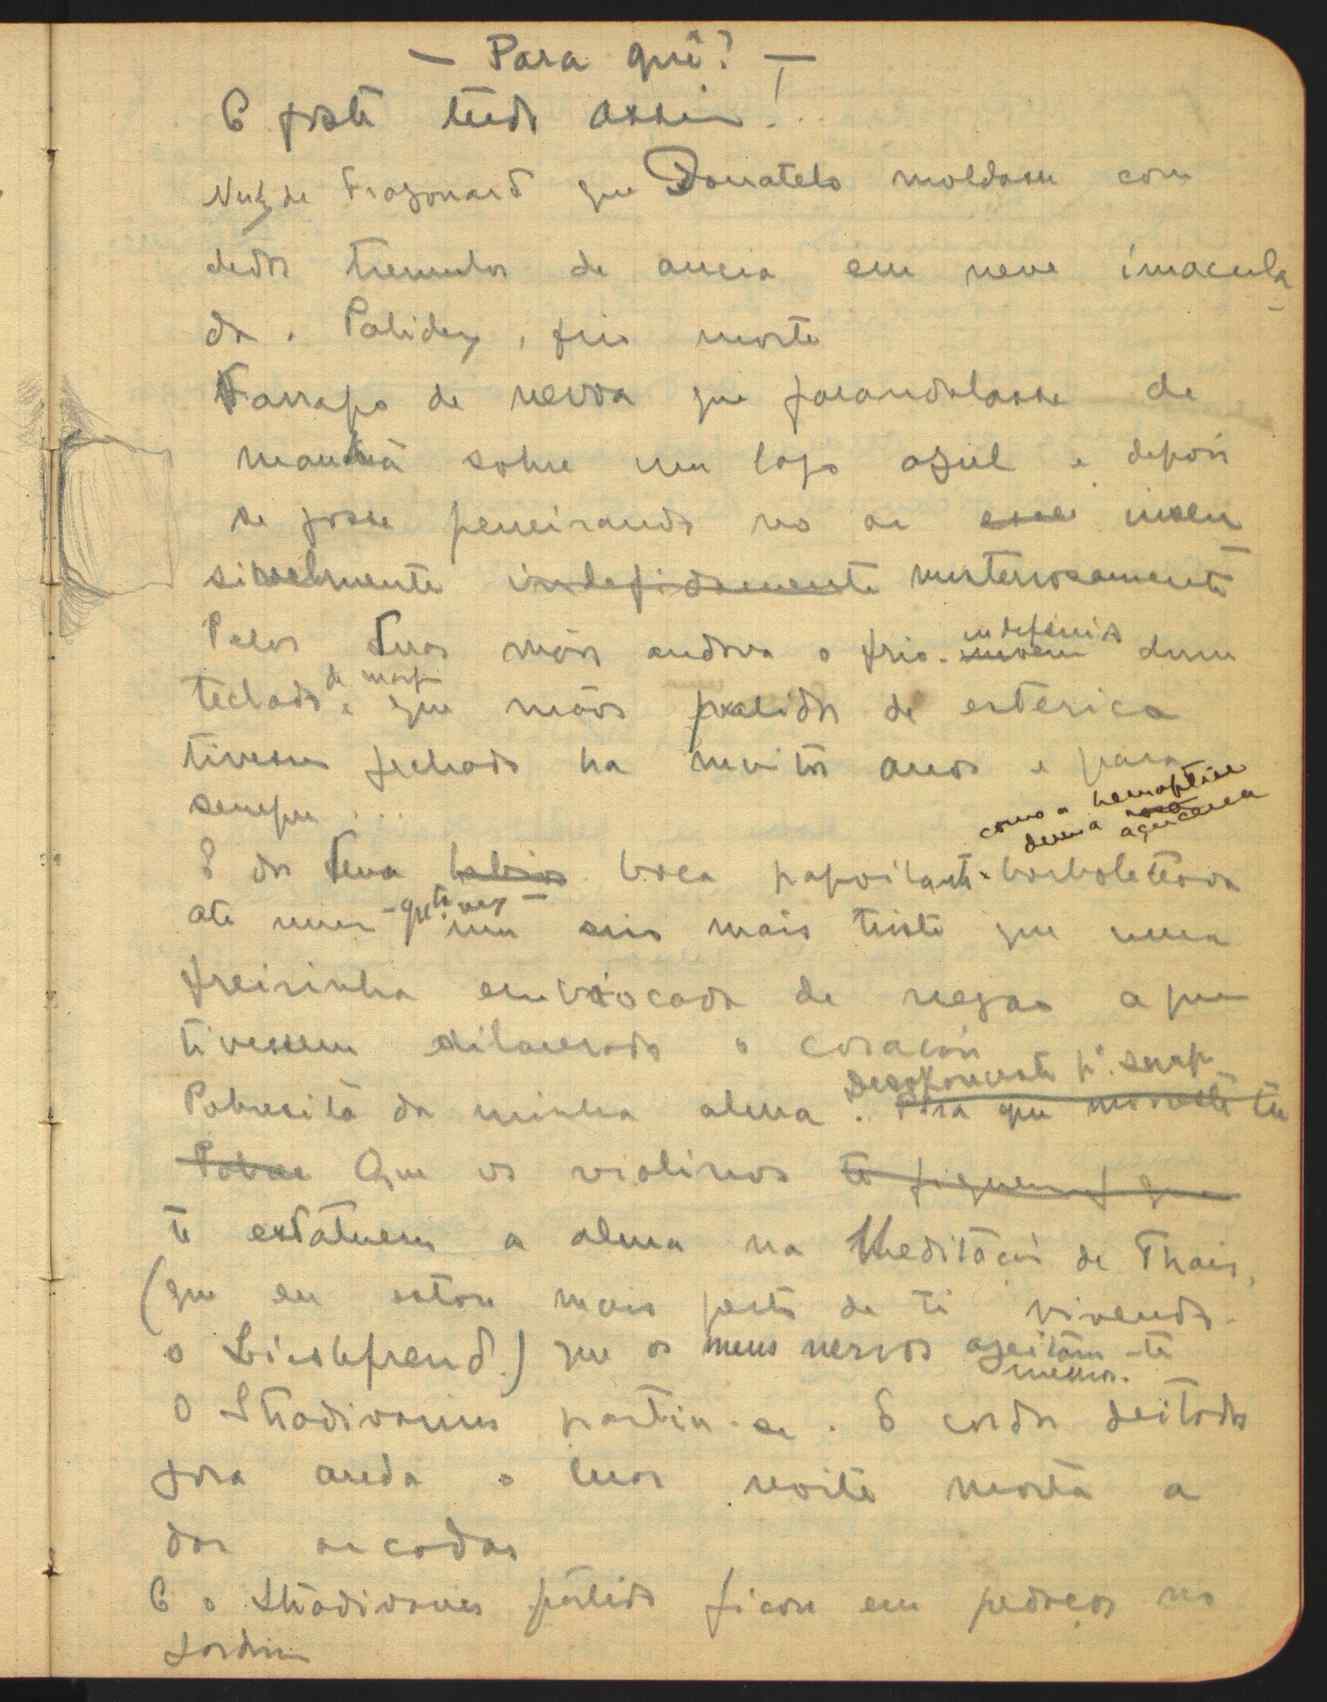 — Para quê? —
E foste tudo assim!..
Nuz de Fragonard que Donatelo moldasse com
dedos tremulos de ancia em neve imacula-
da. Palidez, frio morte
Farrapo de nevoa que farandolasse de
manhã sobre um lago azul e depois
se fosse peneirando no ar esse insen
sivelmente indefidamente misteriosamente
Pelas tuas mãos andava o frio indefinido dum
teclado de marfim que mãos palidas de esterica
tivessem fechado ha muitos anos e para
sempre ...
como a hemoptise
duma rosa açucena
E da tua labios boca papoilante borboleteava
até uma - quita vez - um riso mais triste que uma
freirinha embiocada de negro a quem
tivessem dilacerado o coração
Pobresita da minha alma. Desapareceste p.ª sempre
Pra que morreste tu
Pobre Que os violinos te fiquem
te estatuem a alma na Meditação de Thais,
(que eu estou mais perto de ti vivendo
o Liebesfreud) que os meus nervos ageitam-te
mesmo.
O Stradivarius partiu-se. E cordas deitadas
fora anda o luar noite morta a
dar arcadas
E o Stradivarius partido ficou em pedaços no
jardim